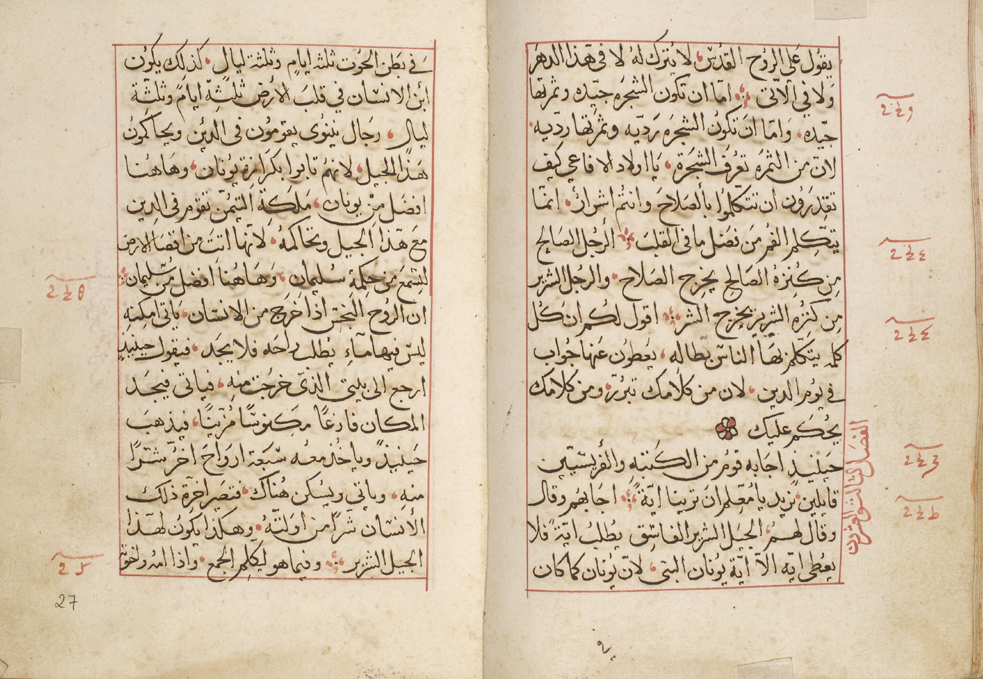 يقول على الروح القدس لا يترك له لا في هذا الدهر
ولا في الاتي اما ان تكون الشجره جيده وثمرتها
جيده واما ان تكون الشجره رديه وثمرتها رديه
لان من الثمرة تعرف الشجرة يا اولاد الافاعي كيف
تقدرون ان تتكلموا بالصلاح وانتم اشرار انما
يتكلم الفم من فضل ما في القلب الرجل الصالح
من كنزه الصالح يخرج الصلاح والرجل الشرير
من كنزه الشرير يخرج الشر اقول لكم ان كل
كلمه يتكلم بها الناس بطاله يعطون عنها جواب
في يوم الدين لان من كلامك تبرر ومن كلامك
يحكم عليك
حينيذ اجابه قوم من الكتبه والفريسيين
قايلين نريد يا معلم ان ترينا اية اجابهم وقال
وقال لهم الجيل الشرير الفاسق يطلب اية فلا
يعطى ايه الا آية يونان النبي لان يونان كما كان
الفصل الثالث والعشرون
في بطن الحوت ثلثة ايام وثلثة ليال كذلك يكون
ابن الانسان في قلب الارض ثلثة ايام وثلثة
ليال رجال نينوى يقومون في الدين ويحاكمون
هذا الجيل لانهم تابوا بكرازة يونان وهاهنا
افضل من يونان ملكة التيمن تقوم في الدين
مع هذا الجيل وتحاكمه لانها اتت من اقصا الارض
لتسمع من حكمة سليمان وهاهنا افضل من سليمان
ان الروح النجس اذا خرج من الانسان ياتي امكنه
ليس فيها ماء يطلب راحه فلا يجد فيقول حينيذ
ارجع الى بيتي الذي خرجت منه فياتي فيجد
المكان فارغا مكنوسا مزينا فيذهب
حينيذ وياخذ معه سبعة ارواح اخر شرا
منه وياتي ويسكن هناك فتصير اخرة ذلك
الانسان شرا من اولته وهكذا يكون لهذا
الجيل الشرير وفيما هو يكلم الجمع واذا امه واخوته
27